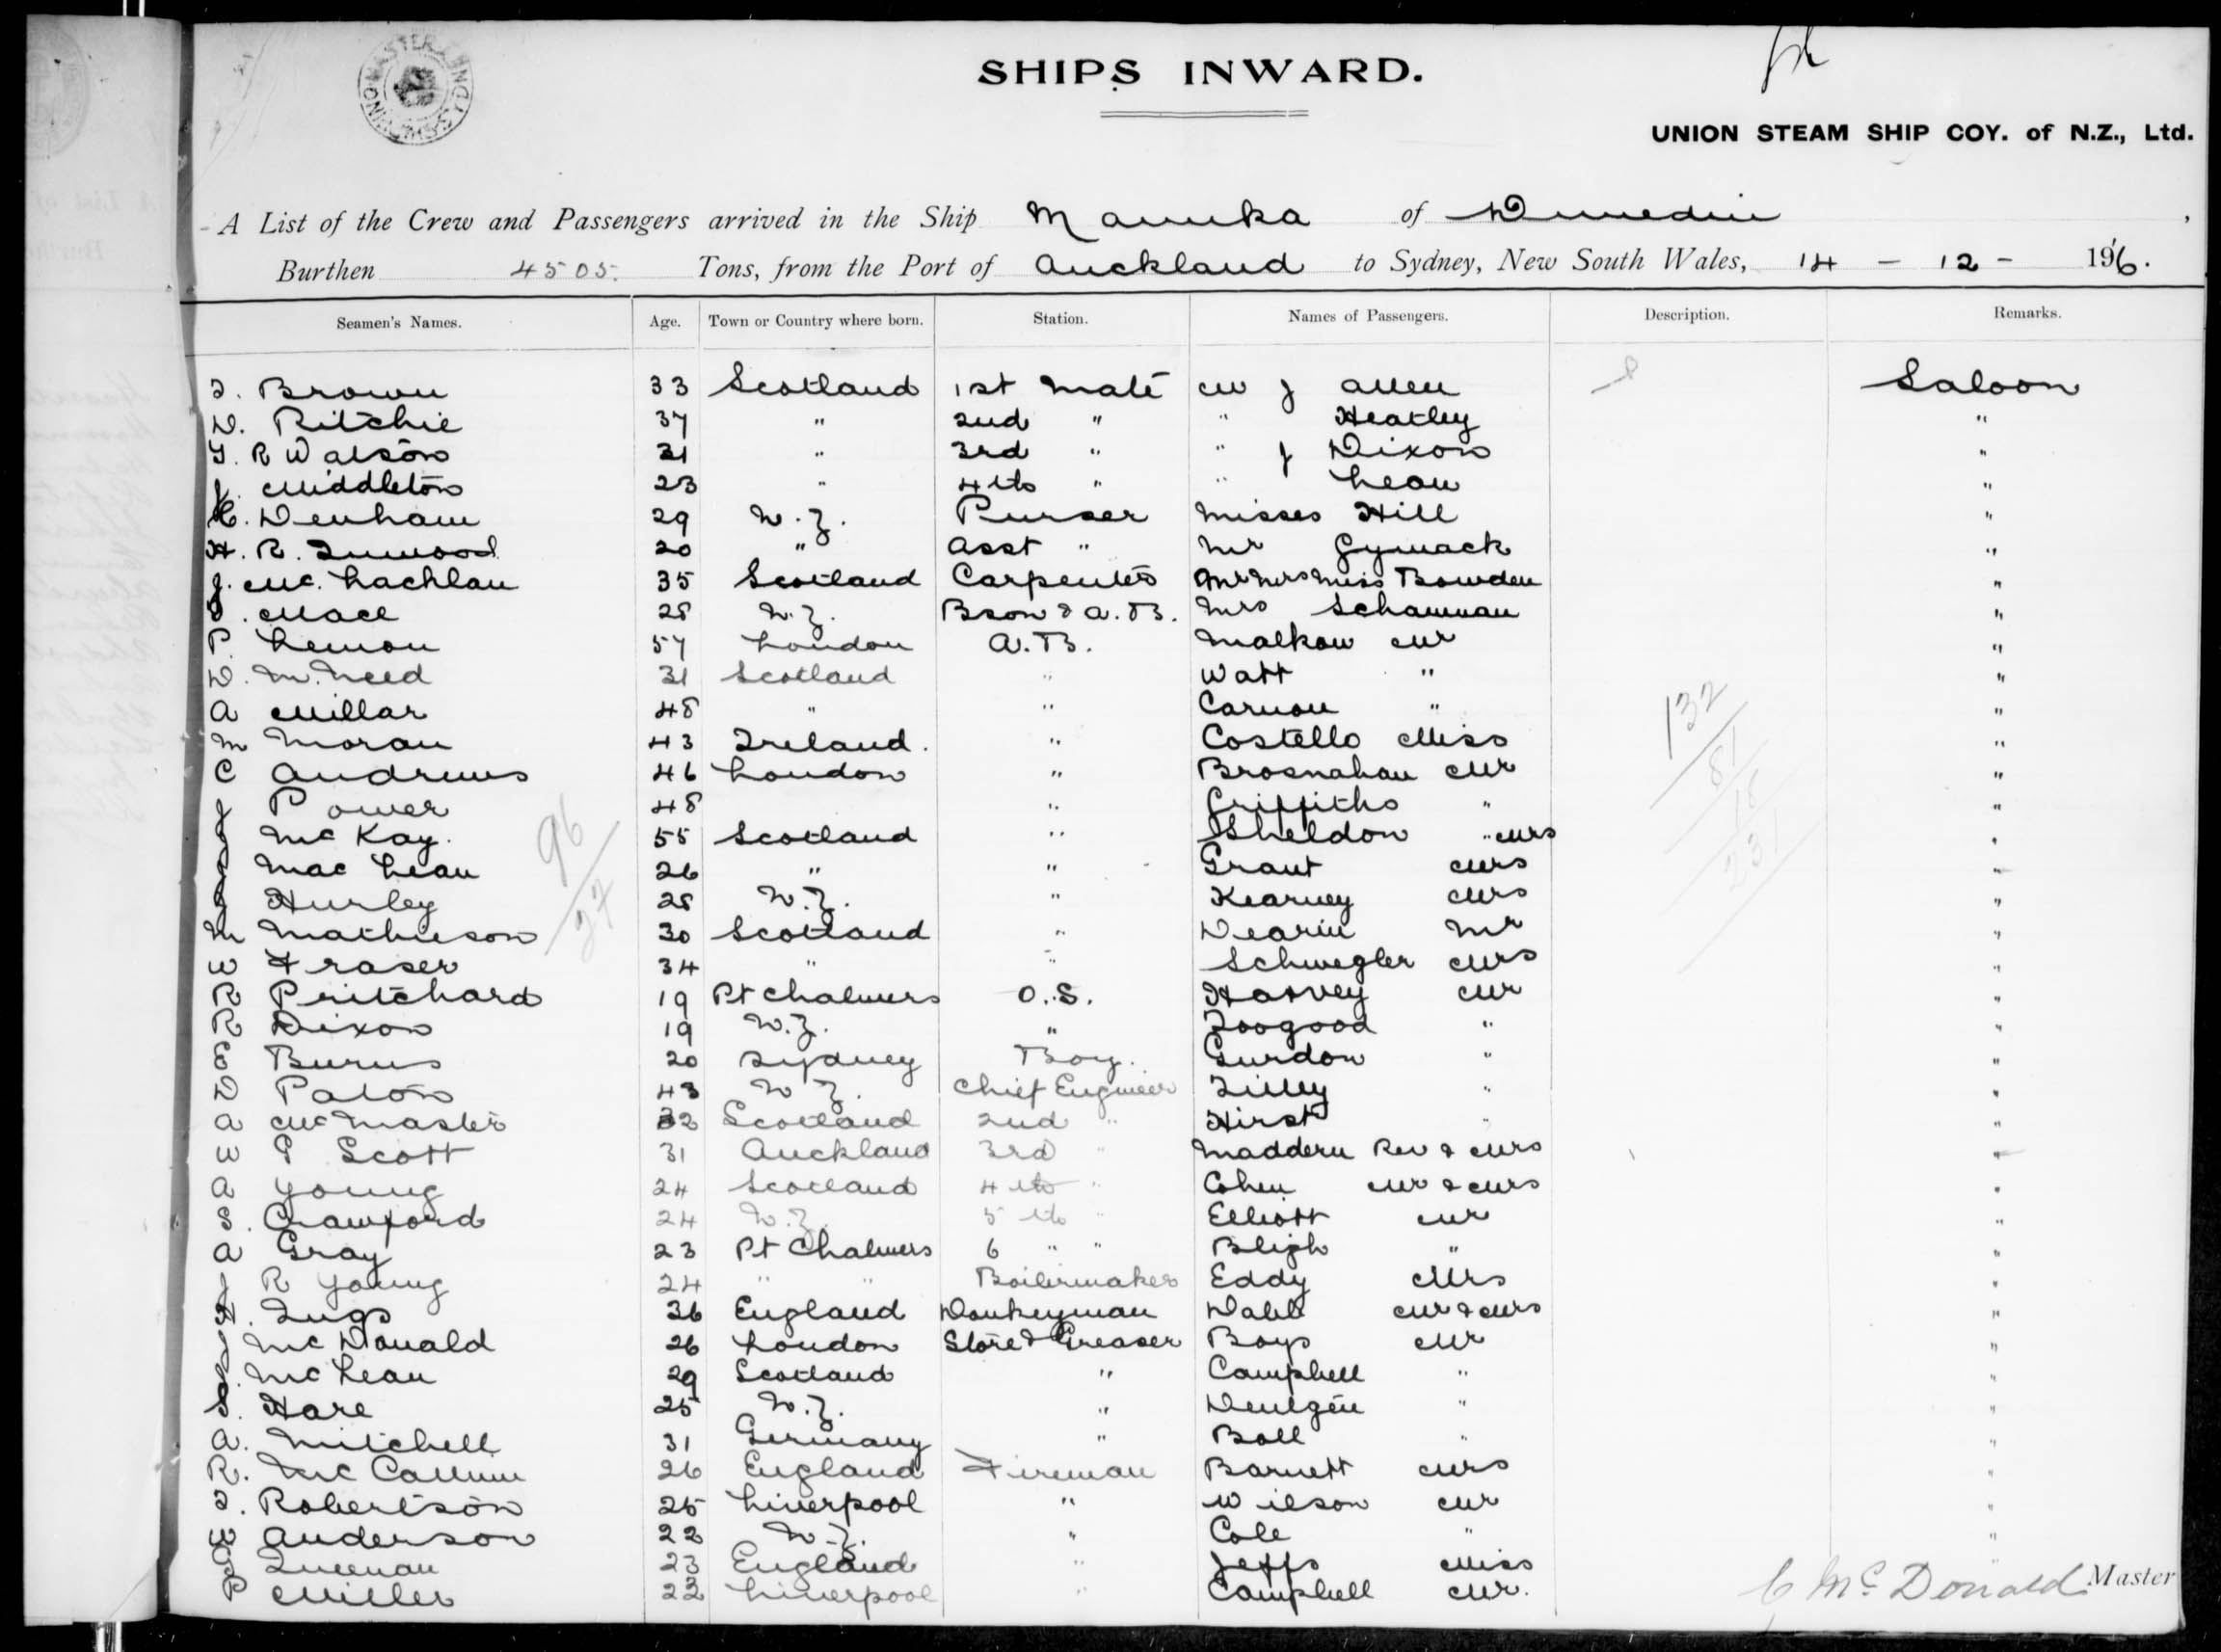 SHIPS INWARD.
UNION STEAM SHIP COY. of N.Z., Ltd.
A List of the Crew and Passengers arrived in the Ship Manuka of Dunedin,
Burthen 4505 Tons, from the Port of Auckland to Sydney, New South Wales, 14 - 12 - 196.
Seamen's Names. Age. Town or Country where born. Station. Names of Passengers. Description. Remarks.
Brown 33 Scotland 1st Mate Mr J Allen Saloon
D. Ritchie 37 " 2nd " " Heatley "
R Watson 31 " 3rd " " J Dixon "
J. Middleton 23 " 4th " " Lean "
H. Denham 29 N.Z. Purser Misses Hill "
H. R. Inwood 20 " Asst " Mr Gymack "
J. McLachlan 35 Scotland Carpenter Mr Mrs Miss Bowden "
Mace 28 N.Z. Bson & A.B. Mrs "
P. Lemon 57 London A.B. Malkow Mr "
D. 31 Scotland " Watt " "
A Millar 48 " " " "
M Moran 43 Ireland. " Costello Miss "
C Andrews 46 London " Brosnahan Mr "
J Power 48 " Griffiths " "
McKay. 55 Scotland " Sheldon " Mrs "
MacLean 26 " " Grant Mrs "
Hurley 28 N.Z. " Kearney Mrs "
M Mathieson 30 Scotland " Mr "
W Fraser 34 " " Schwegler Mrs "
R Pritchard 19 Pt Chalmers O.S. Harvey Mr "
R Dixon 19 N.Z. " Toogood " "
E Burns 20 Sydney Boy. Gurdon " "
D Paton 43 N Z. Chief Engineer Tilley " "
A McMaster 32 Scotland 2nd " Hirst " "
W Scott 31 Auckland 3rd " Maddern Rev & Mrs "
A Young 24 Scotland 4th " Cohen Mr & Mrs "
S. Crawford 24 N.Z. 5th " Elliott Mr "
A Gray 23 Pt Chalmers 6 " " Bligh " "
J R Young 24 " " Boilermaker Eddy Mrs "
36 England Donkeyman Mr & Mrs "
McDonald 26 London Store & Greaser Boys Mr "
McLean 29 Scotland " Campbell " "
S. Hare 25 N.Z. " " "
A. Mitchell 31 Germany " Ball " "
R. McCallum 26 England Fireman Barnett Mrs "
Robertson 25 Liverpool " Wilson Mr "
W Anderson 22 N.Z. " Cole " "
23 England " Jeffs Miss "
P Miller 22 Liverpool " Campbell Mr.
96
27
132
81
18
231
C McDonald Master